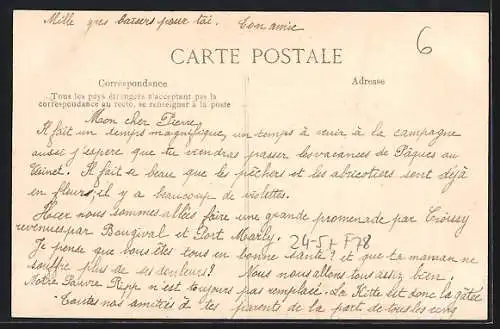 Mille gros baisers pour toi. Ton amie
6
CARTE POSTALE
Correspondance
Adresse
Tous les pays étrangers n'acceptant pas la
correspondance au recto, se renseigner à la poste
Mon cher Pierre,
Il fait un temps magnifique, un temps à venir à la campagne
aussi j'espère que tu viendras passer les vacances de Pâques au
Il fait si beau que les pêchers et les abricotiers sont déjà
en fleurs, il y a beaucoup de violettes.
Hier nous sommes allées faire une grande promenade par Croissy
revenues par Bougival et Port Marly.
24-5+ F78
Je pense que vous êtes tous en bonne santé? et que ta maman ne
souffre plus de ses douleurs? Nous nous allons tous assez bien.
Notre pauvre n'est toujours pas remplacé. La Kitte est donc la gâtée
Toutes nos amitiés à tes parents de la part de tous les cinq